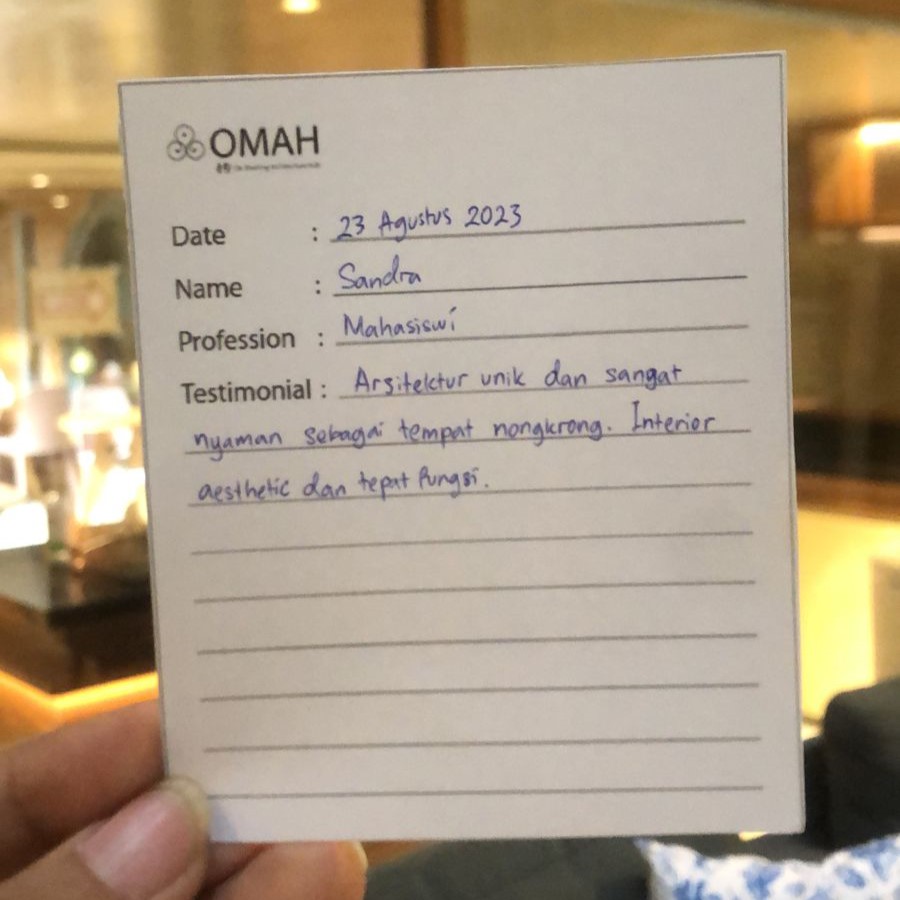 OMAH
Date : 23 Agustus 2023
Name : Sandra
Profession : Mahasiswi
Testimonial : Arsitektur unik dan sangat
nyaman sebagai tempat nongkrong. Interior
aesthetic dan tepat fungsi.